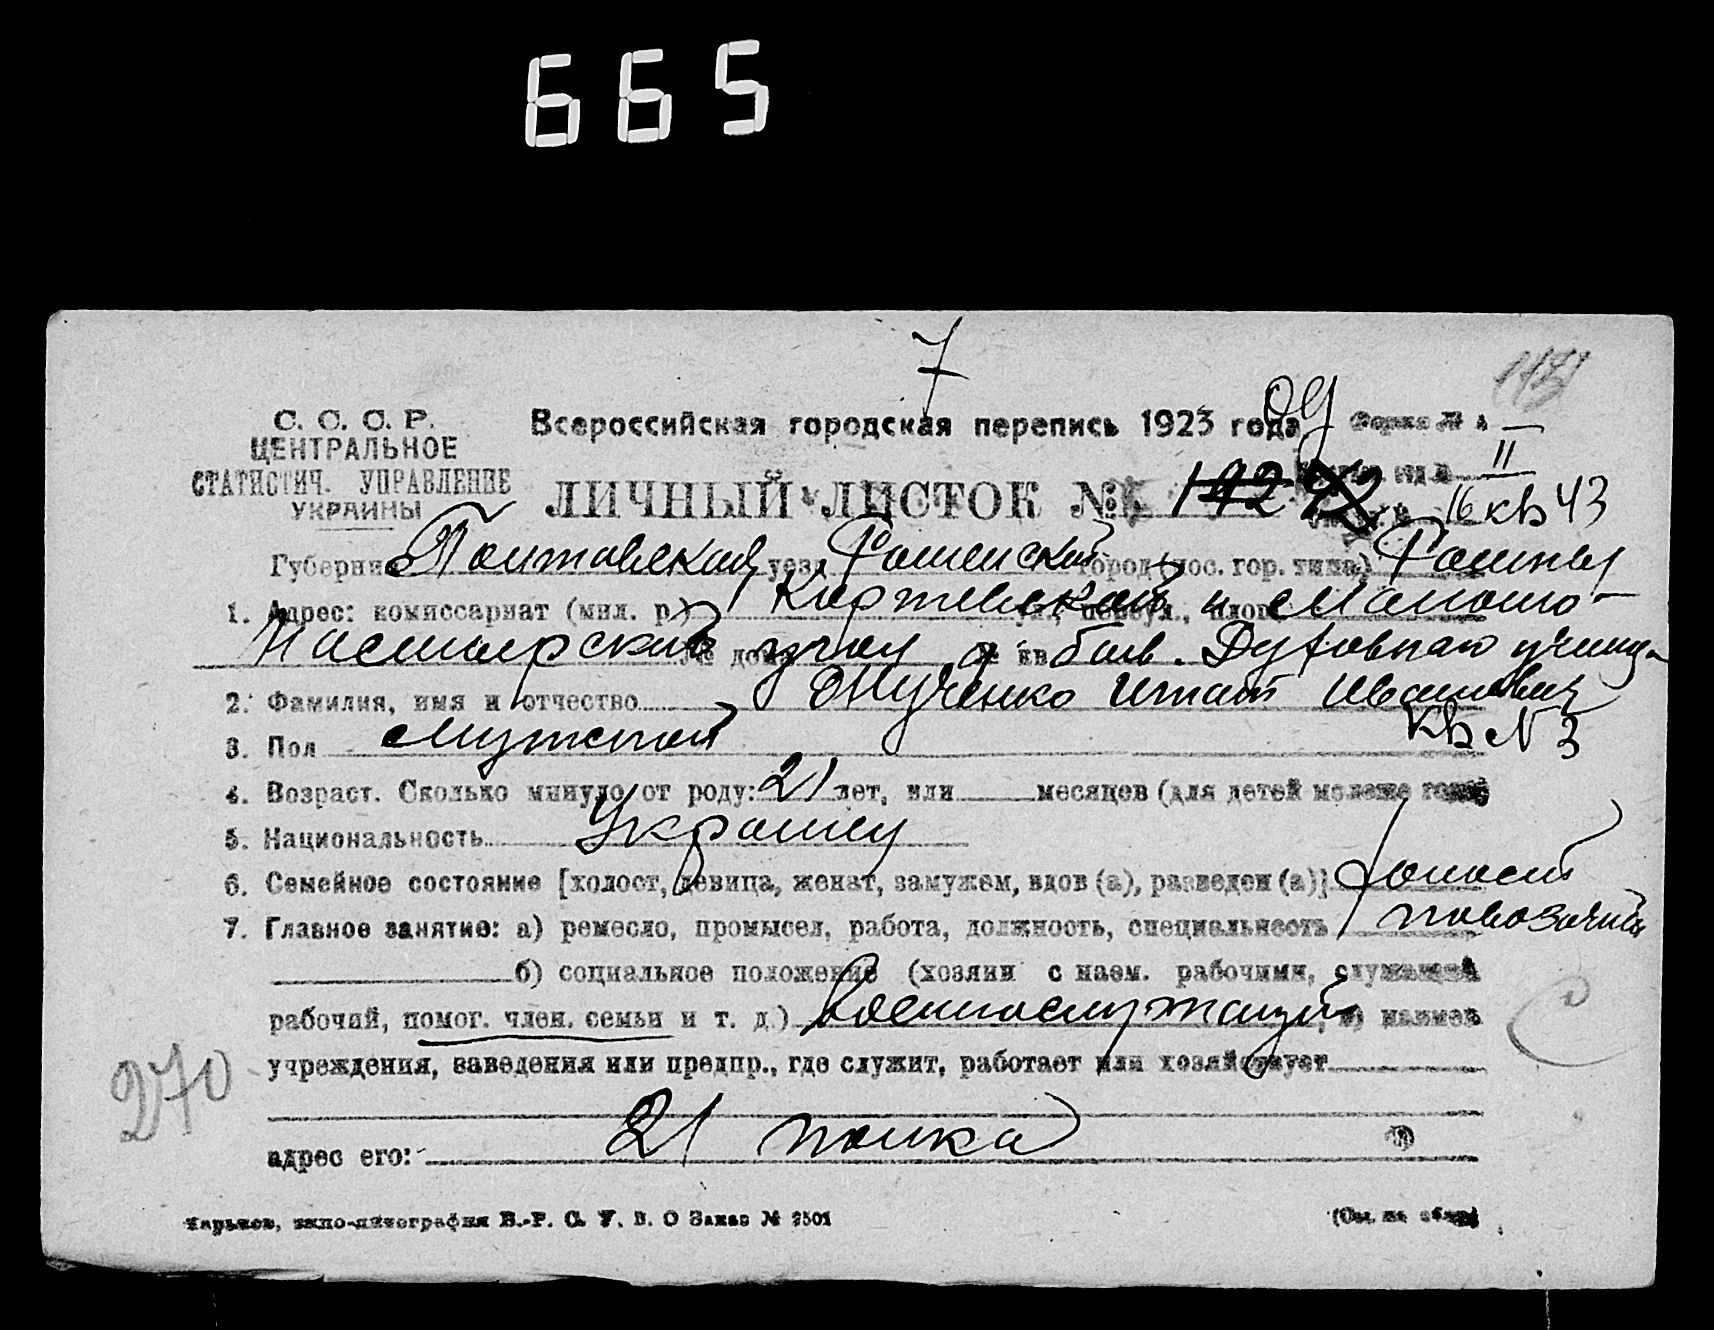 665
7
С. С. С. Р.
ЦЕНТРАЛЬНОЕ
СТАТИСТИЧ. УПРАВЛЕНИЕ
УКРАИНЫ
Всероссийская городская перепись 1923 года
Форма № А
II
16 кв 43
ЛИЧНЫЙ ЛИСТОК №
Губерния Полтавская уезд Роменский город (пос. гор. типа) Ромны
1. Адрес: комиссариат (мил. р.) ул., переул., площ.
№ дома угол № кв. быв. Духовнаю училищ-
2. Фамилия, имя и отчество Иванович
кв № 3
3. Пол мужской
4. Возраст. Сколько минуло от роду: 21 лет, или месяцев (для детей моложе года)
5. Национальность Украинец
6. Семейное состояние [холост, девица, женат, замужем, вдов (а), разведен (а)] холост
7. Главное занятие: а) ремесло, промысел, работа, должность, специальность повозочный
б) социальное положение (хозяин с наем. рабочими, служащий
рабочий, помог. член. семьи и т. д.) Военнослужащий, в) наимен.
учреждения, заведения или предпр., где служит, работает или хозяйствует
270
21 полка
адрес его:
Харьков, типо-литография В.-Р. С. У. В. О Заказ № 2501
(См. на обор.)